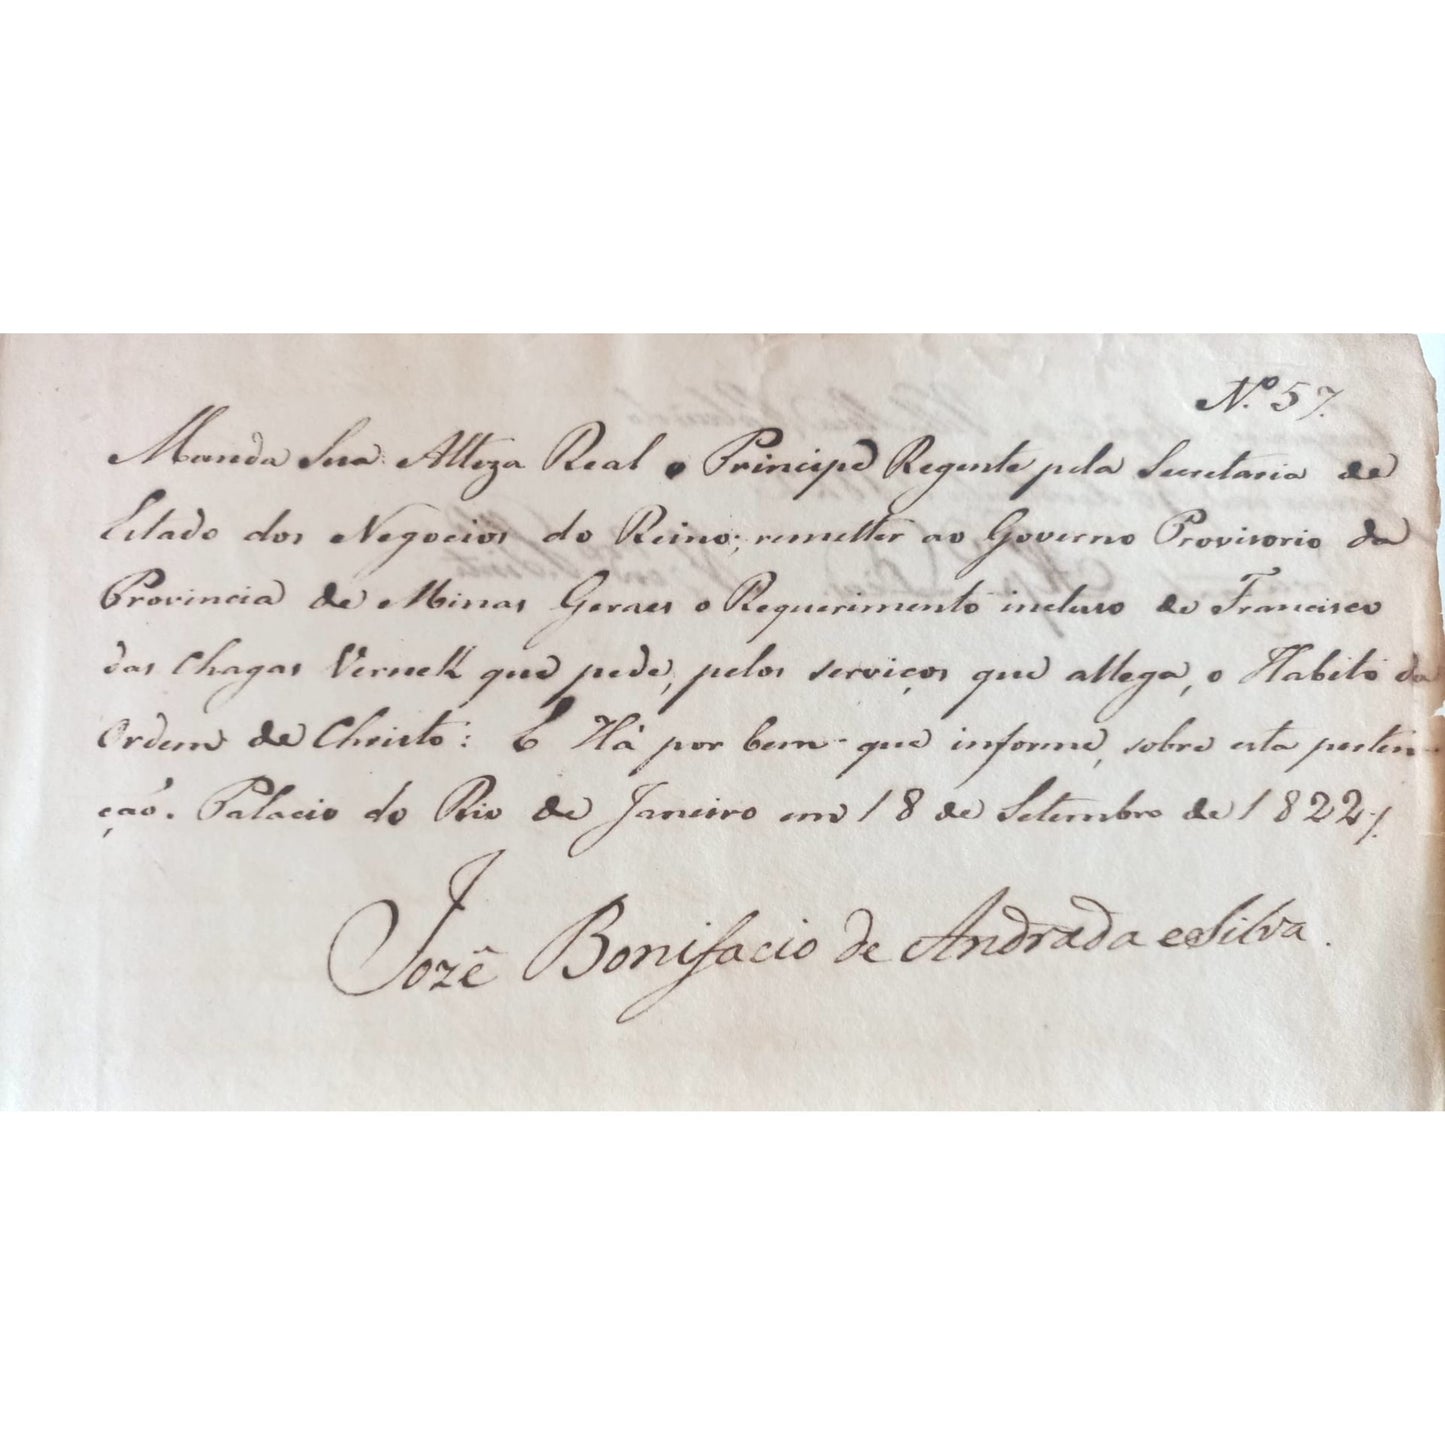 N.º 57.
Manda Sua Alteza Real o Principe Regente pela Secretaria de
Estado dos Negocios do Reino, remetter ao Governo Provisorio da
Provincia de Minas Geraes o Requerimento incluso de Francisco
das Chagas Vernek que pede, pelos serviços que allega, o Habito da
Ordem de Christo: E Há por bem que informe, sobre esta perten-
ção. Palacio do Rio de Janeiro em 18 de Setembro de 1822
Jozê Bonifacio de Andrada e Silva.